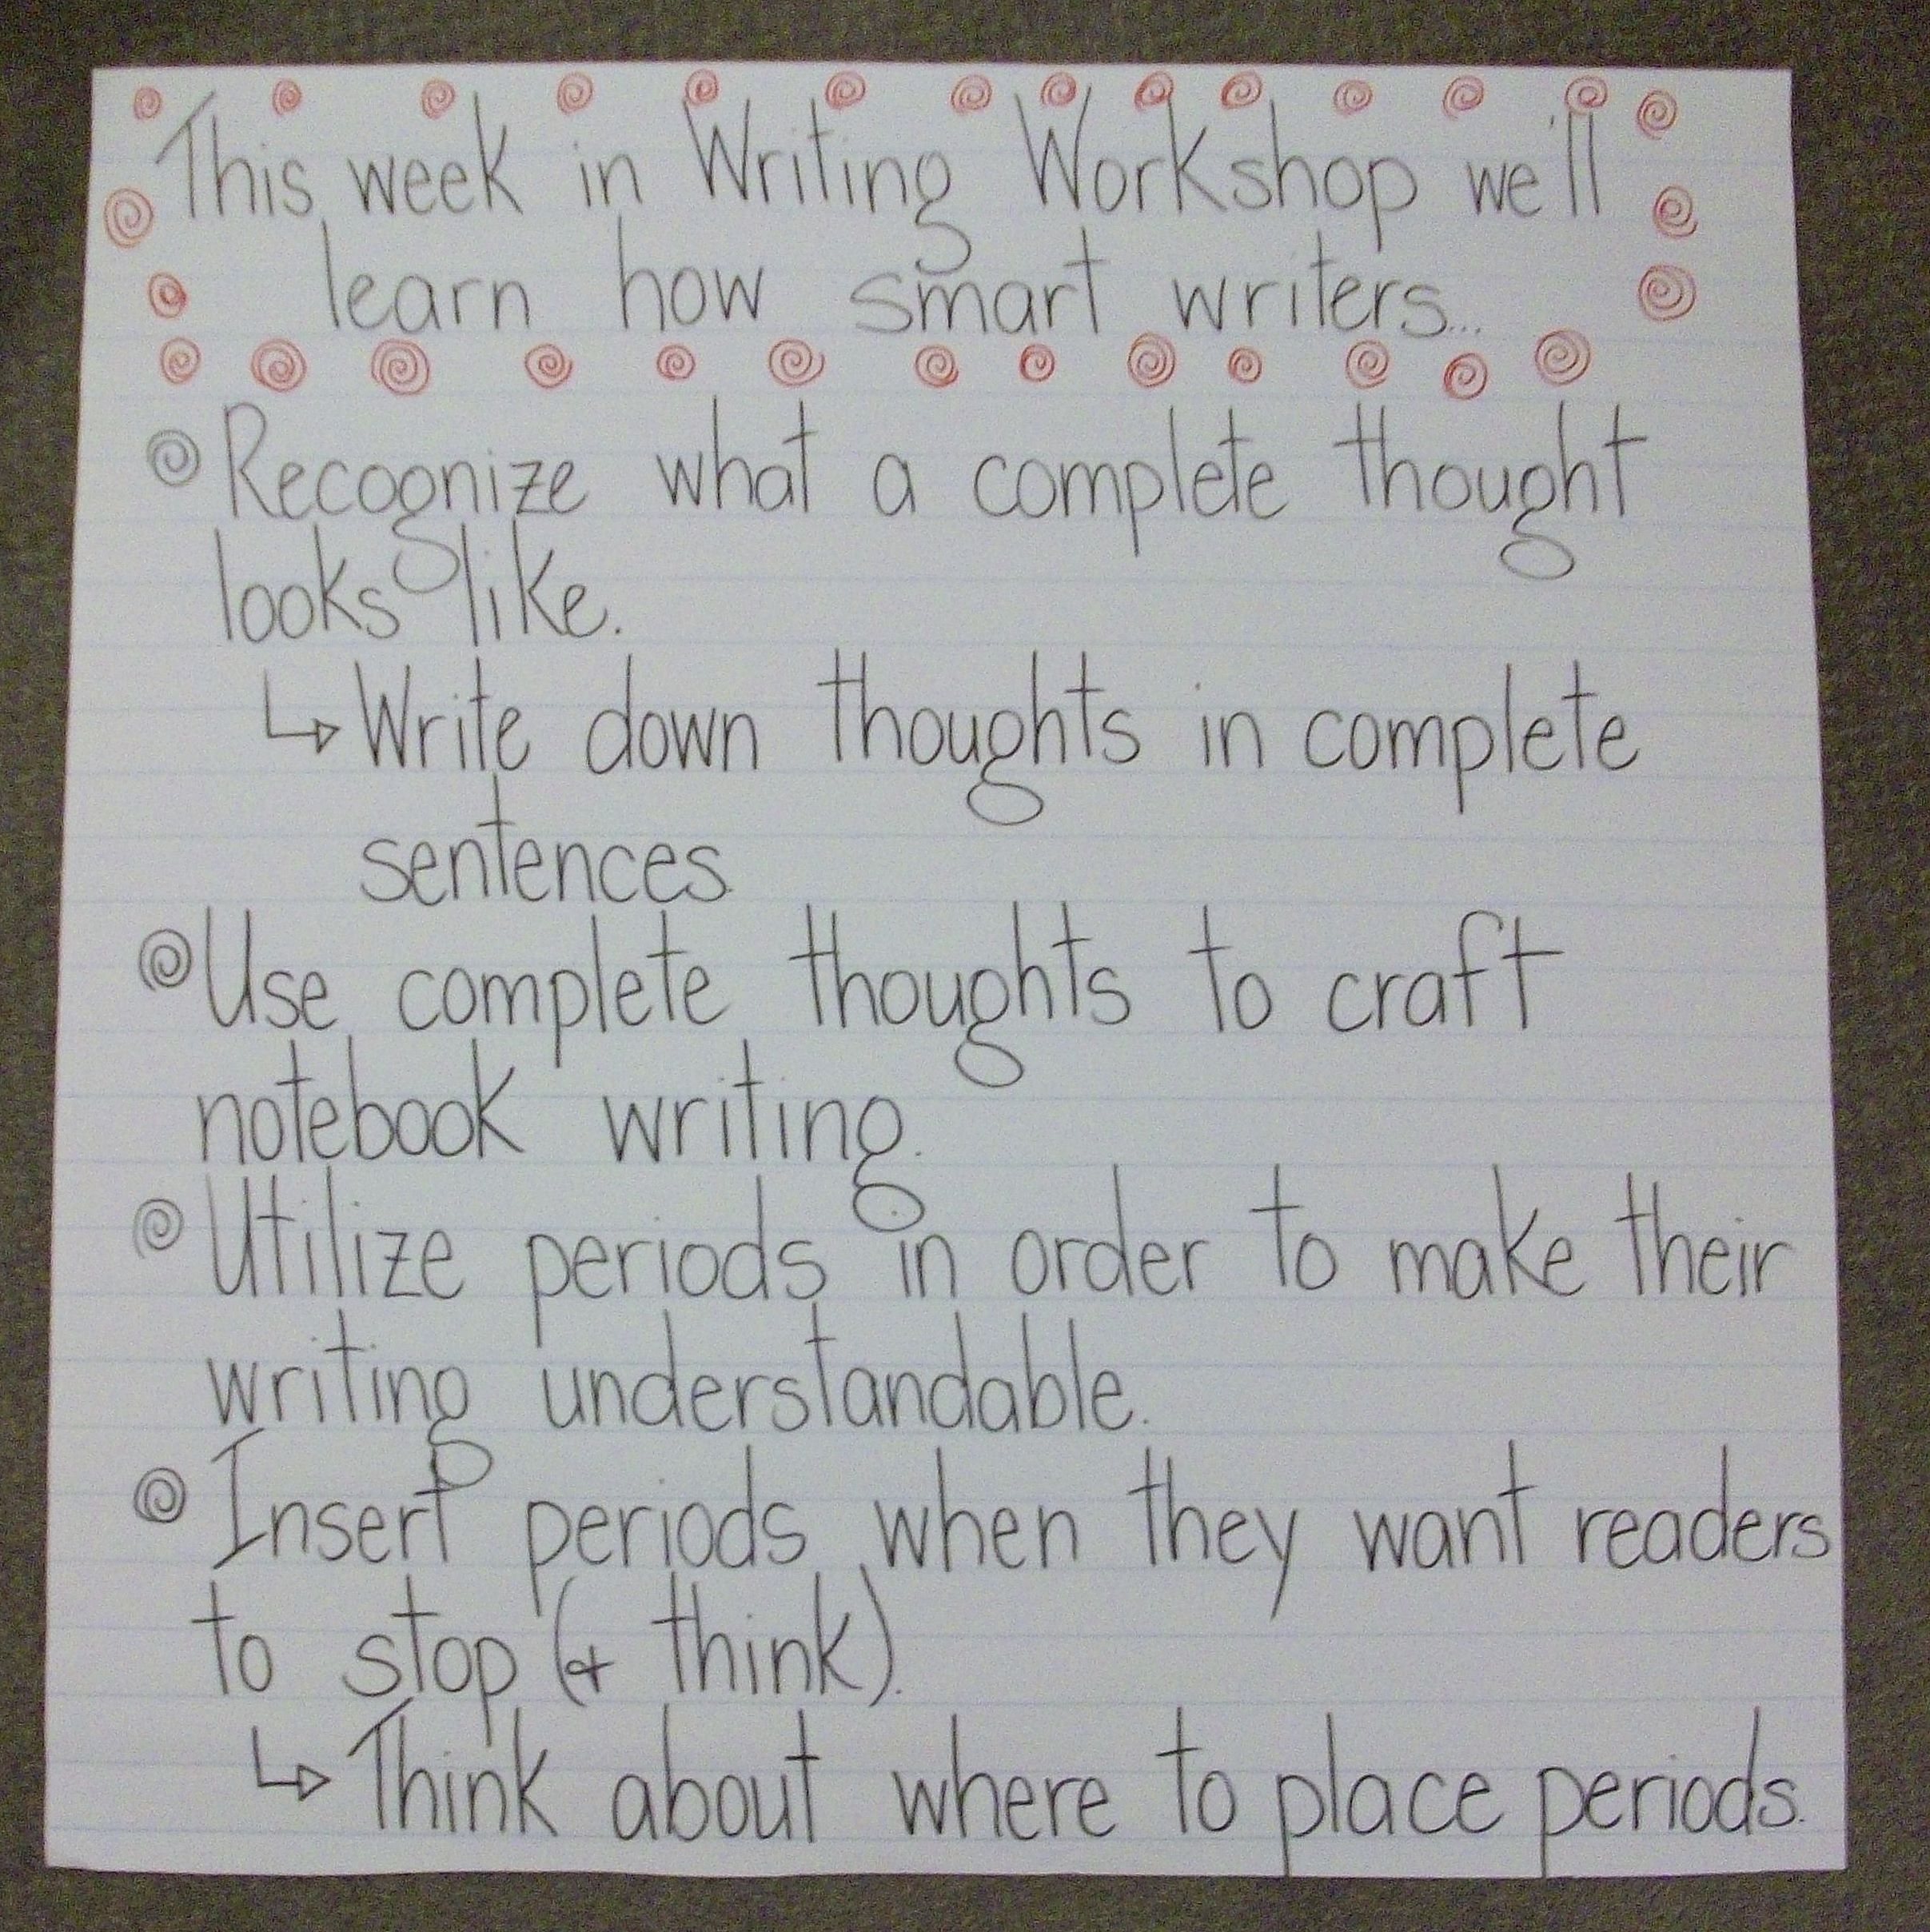 This week in Writing Workshop we'll
learn how smart writers...
Recognize what a complete thought
looks like.
↳ Write down thoughts in complete
sentences.
Use complete thoughts to craft
notebook writing.
Utilize periods in order to make their
writing understandable.
Insert periods when they want readers
to stop (+ think).
↳ Think about where to place periods.